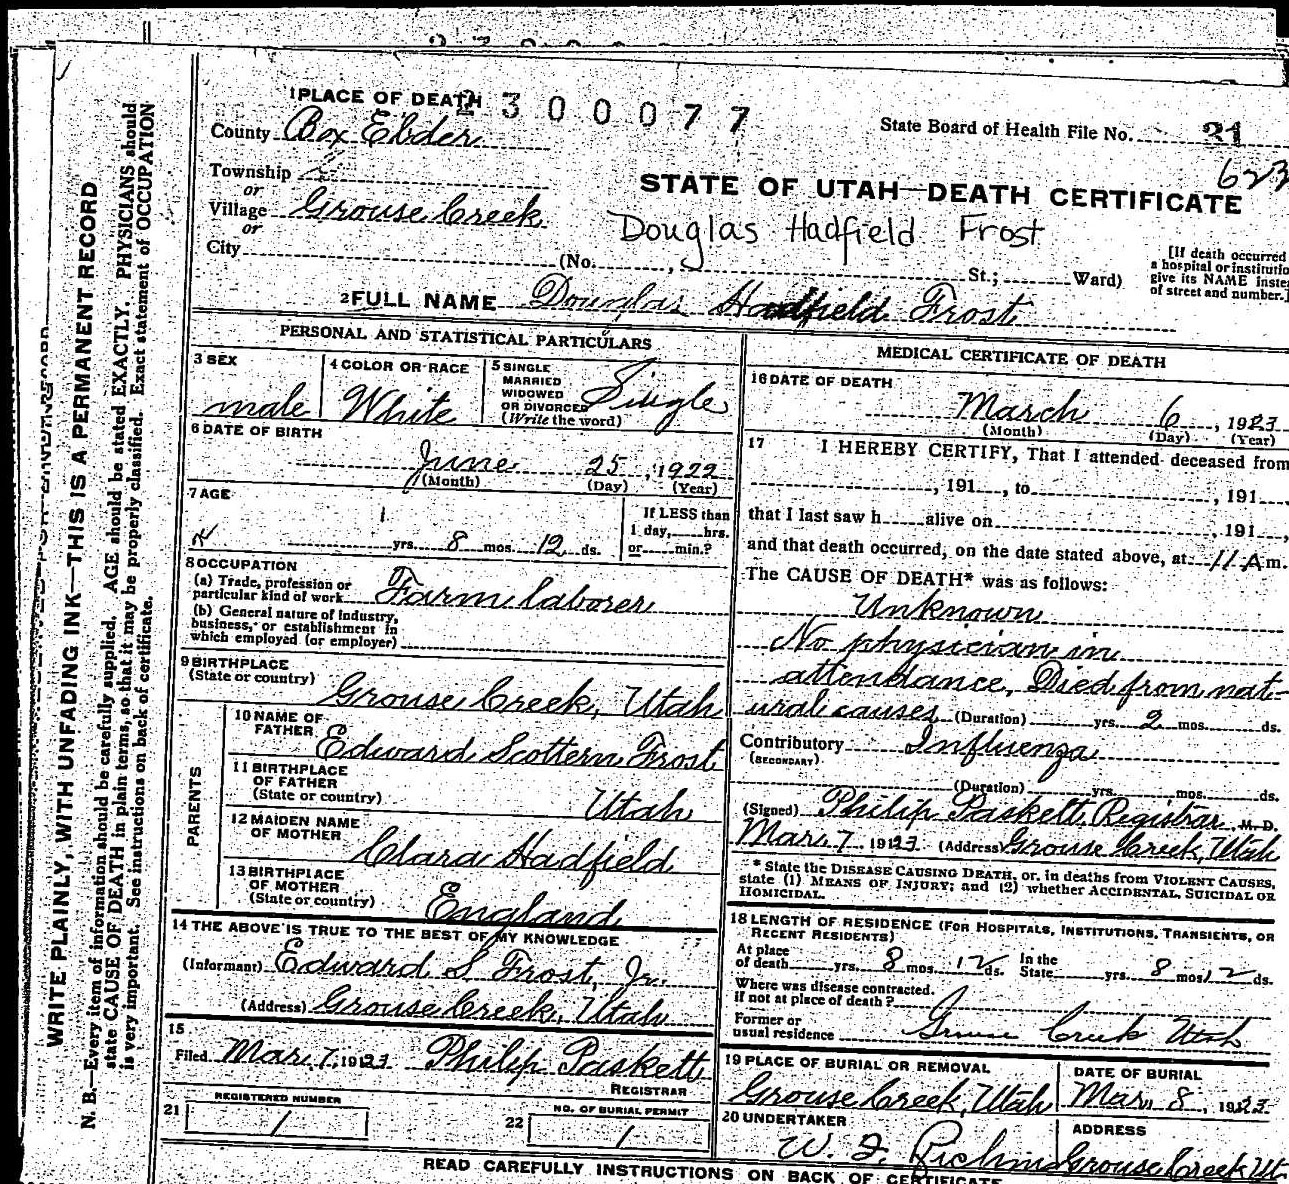 1 PLACE OF DEATH
2 3 0 0 0 7 7
County Box Elder
State Board of Health File No. 21
623
Township
or
Village Grouse Creek
or
City
STATE OF UTAH—DEATH CERTIFICATE
Douglas Hadfield Frost
(No. , St.; Ward)
[If death occurred
a hospital or institutio
give its NAME inste
of street and number.]
2 FULL NAME Douglas Hadfield Frost
PERSONAL AND STATISTICAL PARTICULARS
3 SEX
male
4 COLOR OR RACE
White
5 SINGLE
MARRIED
WIDOWED
OR DIVORCED
(Write the word)
Single
6 DATE OF BIRTH
June 25, 1922
(Month) (Day) (Year)
7 AGE
yrs. 8 mos. 12 ds.
If LESS than
1 day, hrs.
or min.?
8 OCCUPATION
(a) Trade, profession or
particular kind of work Farm laborer
(b) General nature of industry,
business, or establishment in
which employed (or employer)
9 BIRTHPLACE
(State or country)
Grouse Creek, Utah
PARENTS
10 NAME OF
FATHER
Edward Scottern Frost
11 BIRTHPLACE
OF FATHER
(State or country)
Utah
12 MAIDEN NAME
OF MOTHER
Clara Hadfield
13 BIRTHPLACE
OF MOTHER
(State or country)
England
14 THE ABOVE IS TRUE TO THE BEST OF MY KNOWLEDGE
(Informant) Edward S. Frost, Jr.
(Address) Grouse Creek, Utah
15
Filed Mar. 7, 1923 Philip Paskett
REGISTRAR
21 REGISTERED NUMBER
1
22 NO. OF BURIAL PERMIT
1
MEDICAL CERTIFICATE OF DEATH
16 DATE OF DEATH
March 6, 1923
(Month) (Day) (Year)
17 I HEREBY CERTIFY, That I attended deceased from
, 191 , to , 191
that I last saw h alive on , 191 ,
and that death occurred, on the date stated above, at 11 A m.
The CAUSE OF DEATH* was as follows:
Unknown
No physician in
attendance, Died from nat-
ural causes (Duration) yrs. 2 mos. ds.
Contributory Influenza
(SECONDARY)
(Duration) yrs. mos. ds.
(Signed) Philip Paskett, Registrar M. D.
Mar. 7 1923 (Address) Grouse Creek, Utah
* State the DISEASE CAUSING DEATH, or, in deaths from VIOLENT CAUSES,
state (1) MEANS OF INJURY; and (2) whether ACCIDENTAL, SUICIDAL OR
HOMICIDAL.
18 LENGTH OF RESIDENCE (FOR HOSPITALS, INSTITUTIONS, TRANSIENTS, OR
RECENT RESIDENTS)
At place
of death yrs. 8 mos. 12 ds.
In the
State yrs. 8 mos. 12 ds.
Where was disease contracted.
If not at place of death?
Former or
usual residence Grouse Creek Utah
19 PLACE OF BURIAL OR REMOVAL
Grouse Creek, Utah
DATE OF BURIAL
Mar. 8, 1923
20 UNDERTAKER
W. F.
ADDRESS
Grouse Creek Ut.
READ CAREFULLY INSTRUCTIONS ON BACK OF CERTIFICATE
WRITE PLAINLY, WITH UNFADING INK—THIS IS A PERMANENT RECORD
N. B.—Every item of information should be carefully supplied. AGE should be stated EXACTLY. PHYSICIANS should
state CAUSE OF DEATH in plain terms, so that it may be properly classified. Exact statement of OCCUPATION
is very important. See instructions on back of certificate.